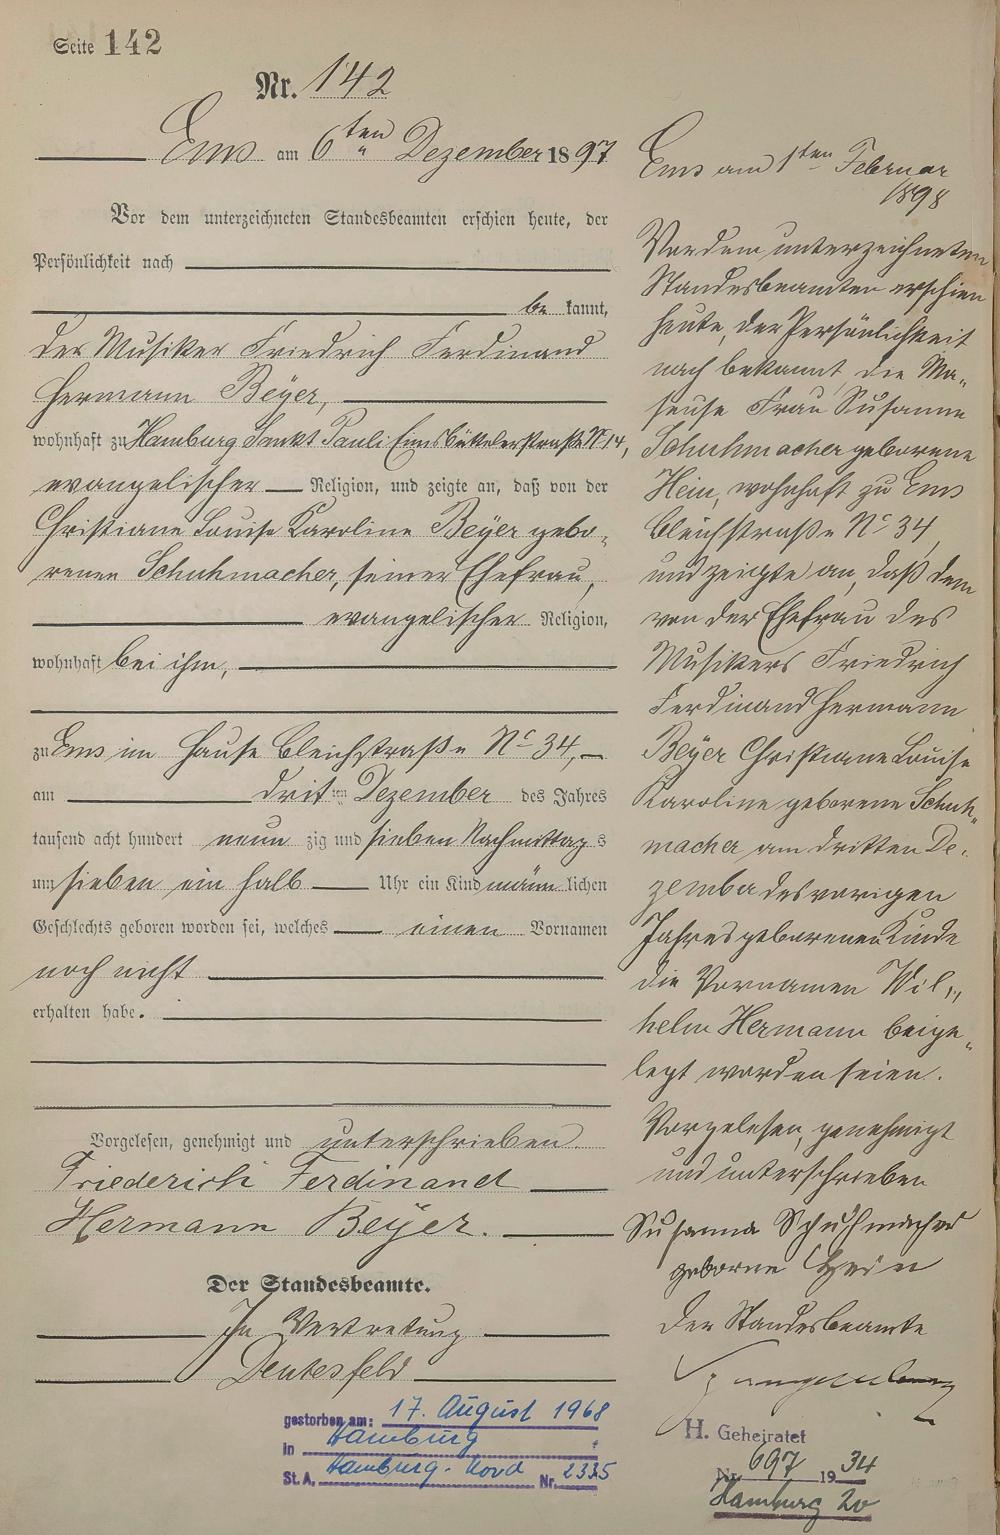 Seite 142
Nr. 142
Ems am 6ten Dezember 1897
Vor dem unterzeichneten Standesbeamten erschien heute, der
Persönlichkeit nach
be kannt,
der Musiker Friedrich Ferdinand
Hermann Beÿer,
wohnhaft zu Hamburg Sankt Pauli Eimsbüttelerstraße No 14,
evangelischer Religion, und zeigte an, daß von der
Christiane Louise Karoline Beÿer gebo-
renen Schuhmacher, seiner Ehefrau,
evangelischer Religion,
wohnhaft bei ihm,
zu Ems im Hause Bleichstraße No 34,
am dritten Dezember des Jahres
tausend acht hundert neun zig und sieben Nachmittags
um sieben ein halb Uhr ein Kind männlichen
Geschlechts geboren worden sei, welches einen Vornamen
noch nicht
erhalten habe.
Vorgelesen, genehmigt und unterschrieben
Friederich Ferdinand
Hermann Beÿer.
Der Standesbeamte.
In Vertretung
Deutesfeld
gestorben am: 17. August 1968
in Hamburg
St.A. Hamburg-Nord Nr. 2335
Ems am 1ten Februar
1898
Vor dem unterzeichneten
Standesbeamten erschien
heute, der Persönlichkeit
nach bekannt, die Ma-
seuse Frau Susanne
Schuhmacher geborene
Hein, wohnhaft zu Ems
Bleichstraße No 34,
und zeigte an, daß dem
von der Ehefrau des
Musikers Friedrich
Ferdinand Hermann
Beÿer Christiane Louise
Karoline geborene Schuh-
macher am dritten De-
zember des vorigen
Jahres geborenen Kinde
die Vornamen Wil-
helm Hermann beige-
legt worden seien.
Vorgelesen, genehmigt
und unterschrieben
Susanna Schuhmacher
geborne Hein
Der Standesbeamte
H. Geheiratet
Nr. 697 1934
Hamburg 20